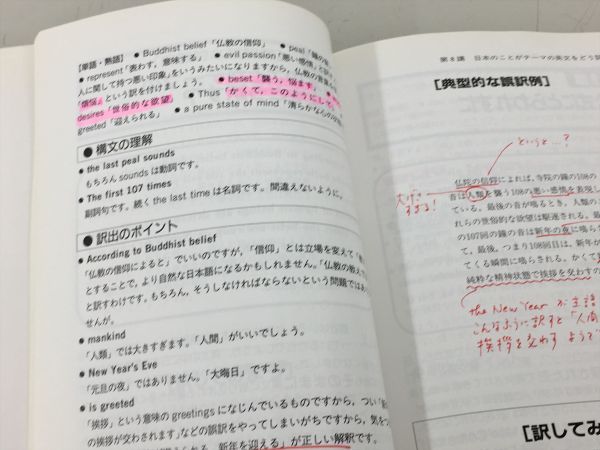 [単語・熟語] ● Buddhist belief「仏教の信仰」 ● peal「鐘の
● represent「表わす，意味する」 ● evil passion「悪い感情」と訳
人に関して持つ悪い印象」をいうみたいになりますから，仏教の言葉
「煩悩」という訳を付けましょう。 ● beset「襲う，悩ます」
desires「世俗的な欲望」 ● Thus「かくて，このようにして」
greeted「迎えられる」 ● a pure state of mind「清らかな心の
● 構文の理解
● the last peal sounds
もちろん sounds は動詞です。
● The first 107 times
副詞句です。続く the last time は名詞です。間違えないように。
● 訳出のポイント
● According to Buddhist belief
「仏教の信仰によると」でいいのですが，「信仰」とは立場を変えて「
とすることで，より自然な日本語になるかもしれません。「仏教の教え
と訳すわけです。もちろん，そうしなければならないという問題では
せんが。
● mankind
「人類」では大きすぎます。「人間」がいいでしょう。
● New Year's Eve
「元旦の夜」ではありません。「大晦日」ですよ。
● is greeted
「挨拶」という意味の greetings になじんでいるものですから，つい「
の挨拶が交わされます」などの誤訳をやってしまいがちですから，気を
新年を迎える」が正しい解釈です。
第8講 日本のことがテーマの英文をどう訳
[典型的な誤訳例]
というと…?
仏院の信仰によれば，寺院の鐘の108の
音は人類を襲う108の悪い感情を表現し
ている。最後の音が鳴るとき，人類の
れらの世俗的な欲望は駆逐される。最
の107回の鐘の音は新年の夜に鳴ら
て，最後，つまり108回目は，新年が
てくる瞬間に鳴らされる。かくて
純粋な精神状態で挨拶を交わす
大げさ
すぎる!
the New Year が主語
こんなふうに訳すと「人間
挨拶を交わすようで
[訳してみ